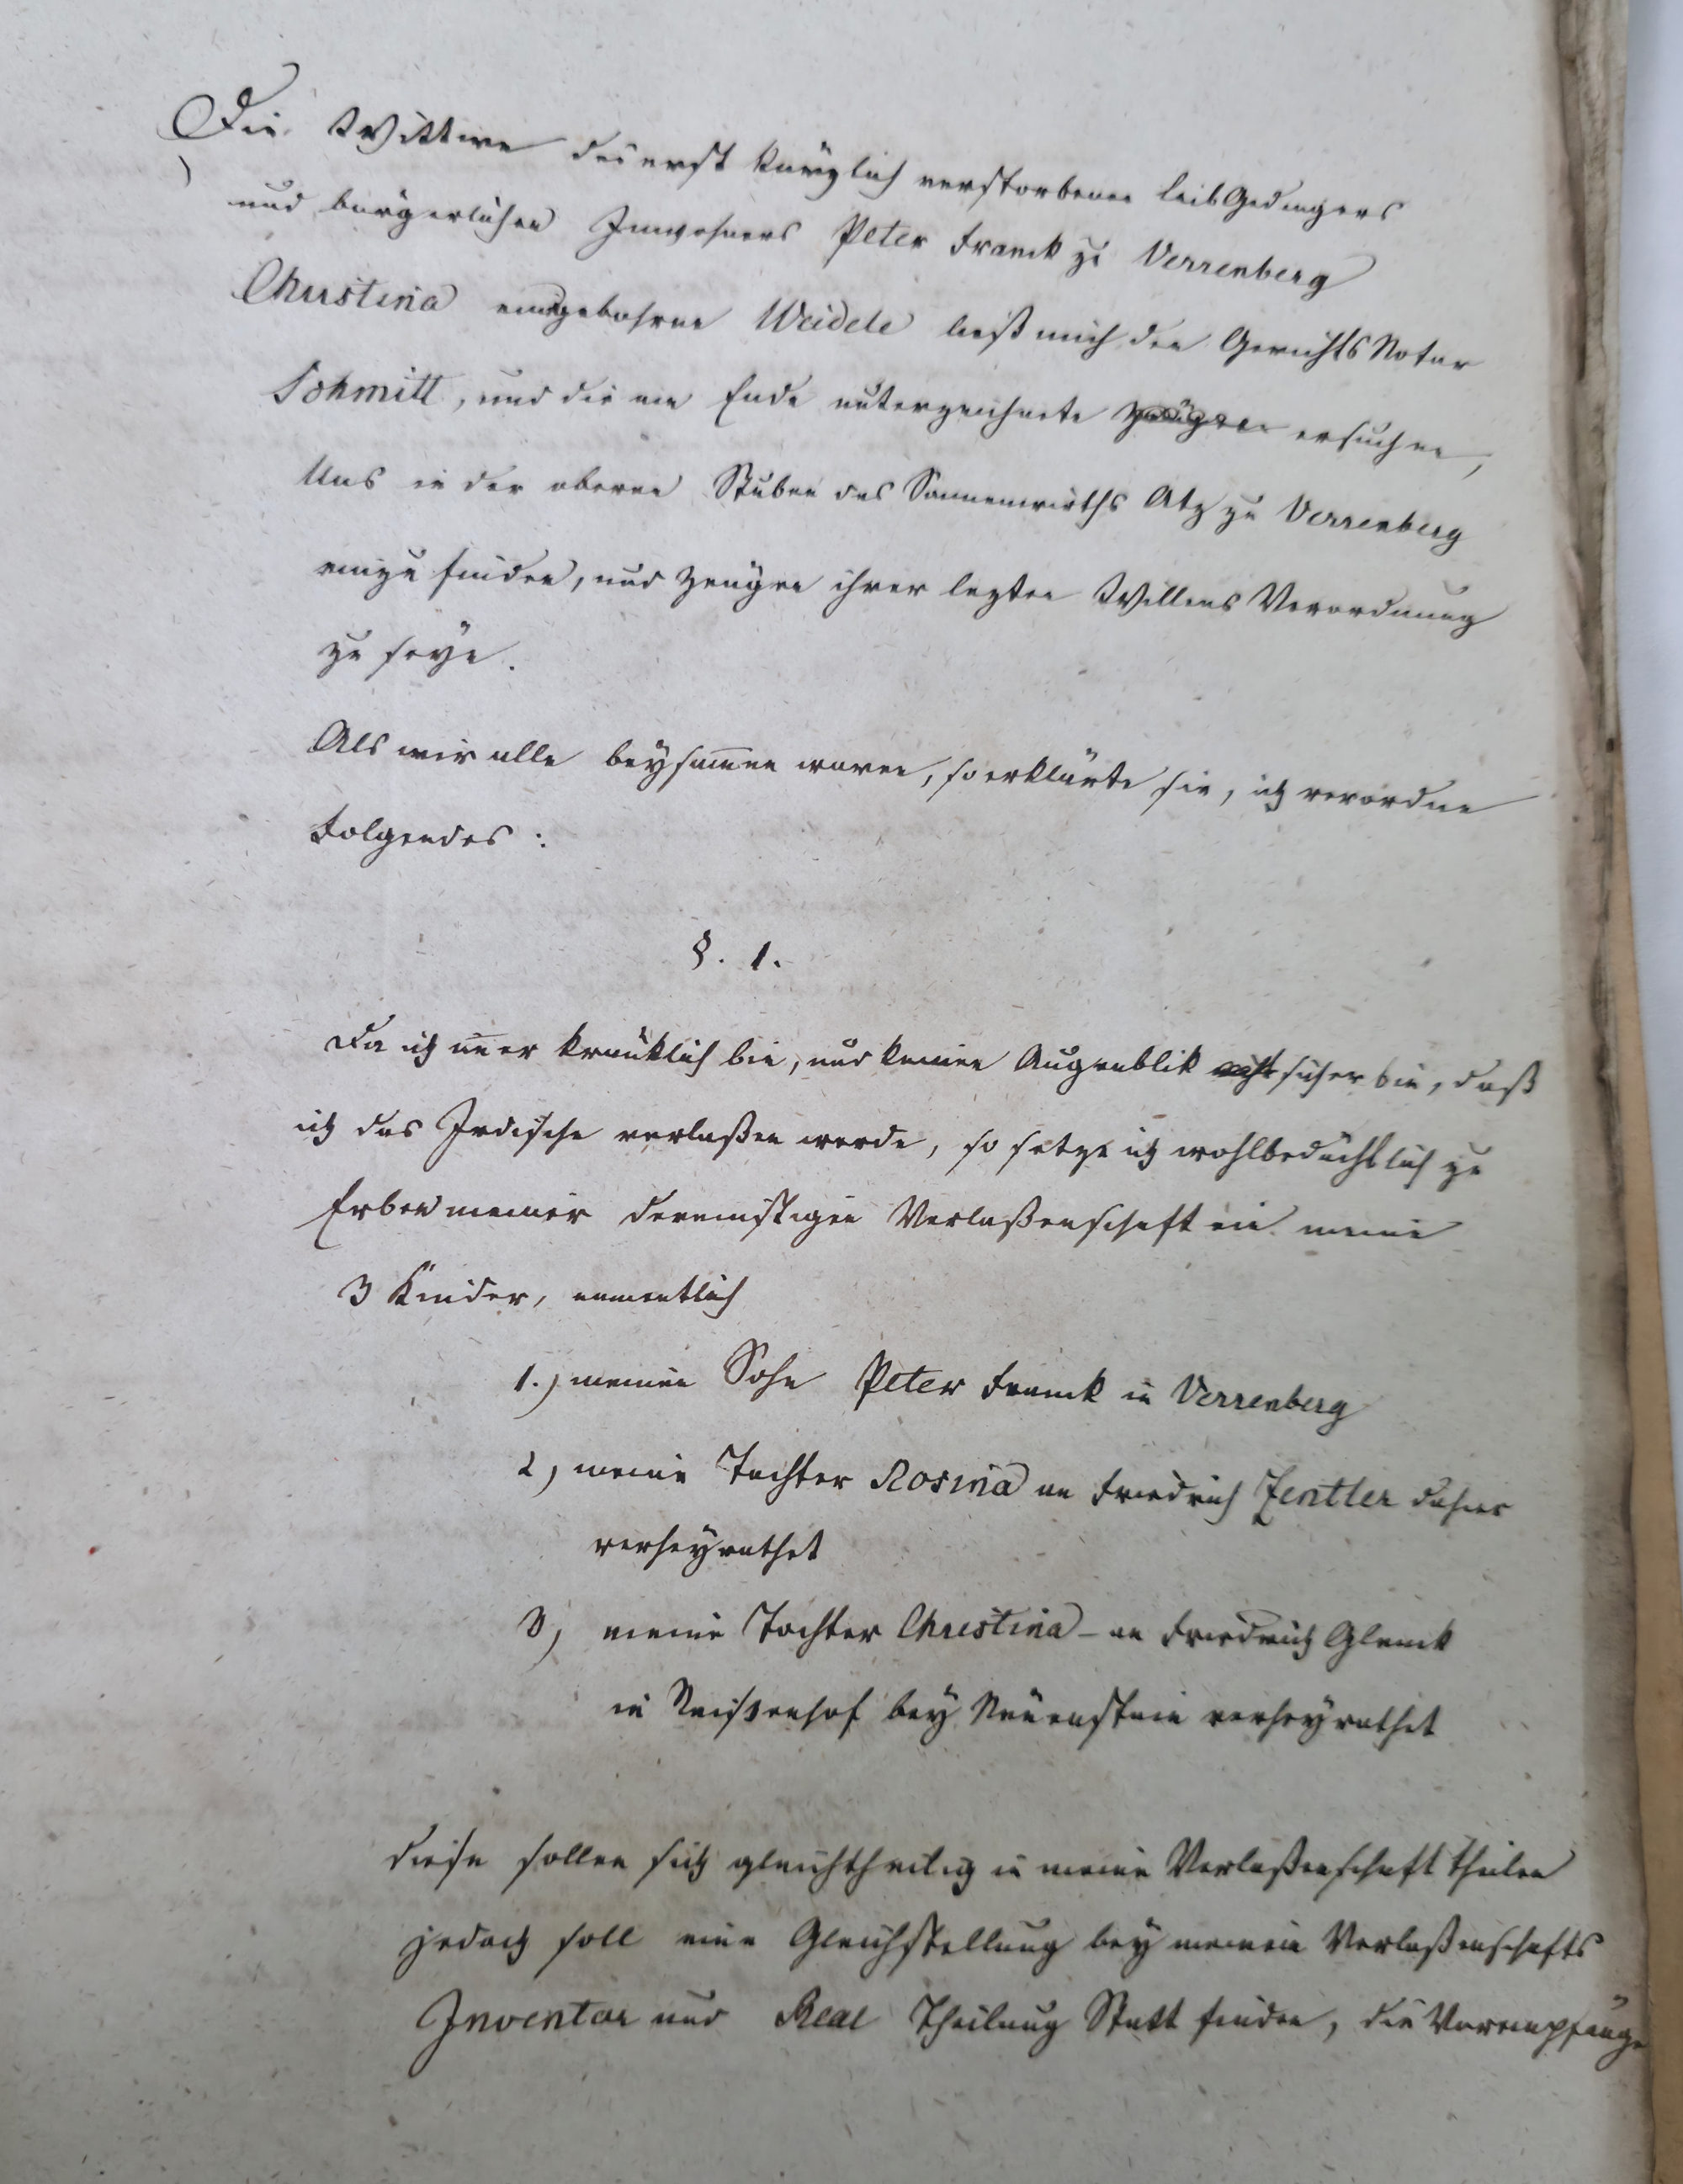 Die Wittwe des erst kürzlich verstorbenen LeibGedingers
und bürgerlichen Inwohners Peter Franck zu Verrenberg
Christina eine gebohrne Weidele ließ mich den GerichtsNotar
Schmitt, und die am Ende unterzeichnete Zeugen ersuchen,
Uns in der oberen Stuben des Sonnenwirths Atz zu Verrenberg
einzufinden, und Zeugen ihrer lezten Willens Verordnung
zu seyn.
Als wir alle beysam̅en waren, so erklärte sie, ich verordne
Folgendes:
§. 1.
Da ich im̅er kränklich bin, und keinen Augenblik sicher bin, daß
ich das Irdische verlaßen werde, so setze ich wohlbedächtlich zu
Erben meiner dereinstigen Verlaßenschaft ein meine
3 Kinder, namentlich
1.) meinen Sohn Peter Franck in Verrenberg
2) meine Tochter Rosina an Friedrich Zentler dahier
verheyrathet
3) meine Tochter Christina - an Friedrich Glenck
in bey Neuenstein verheyrathet
diese sollen sich gleichtheilig in meine Verlaßenschaft theilen
jedoch soll eine Gleichstellung bey meinen Verlaßenschafts
Inventar und Real Theilung Statt finden, die Vorempfänge